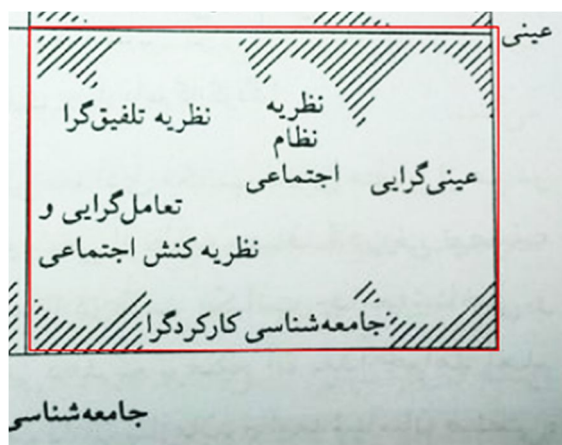 عینی
نظریه تلفیق‌گرا
نظریه
نظام
اجتماعی
عینی‌گرایی
تعامل‌گرایی و
نظریه کنش اجتماعی
جامعه‌شناسی کارکردگرا
جامعه‌شناسی